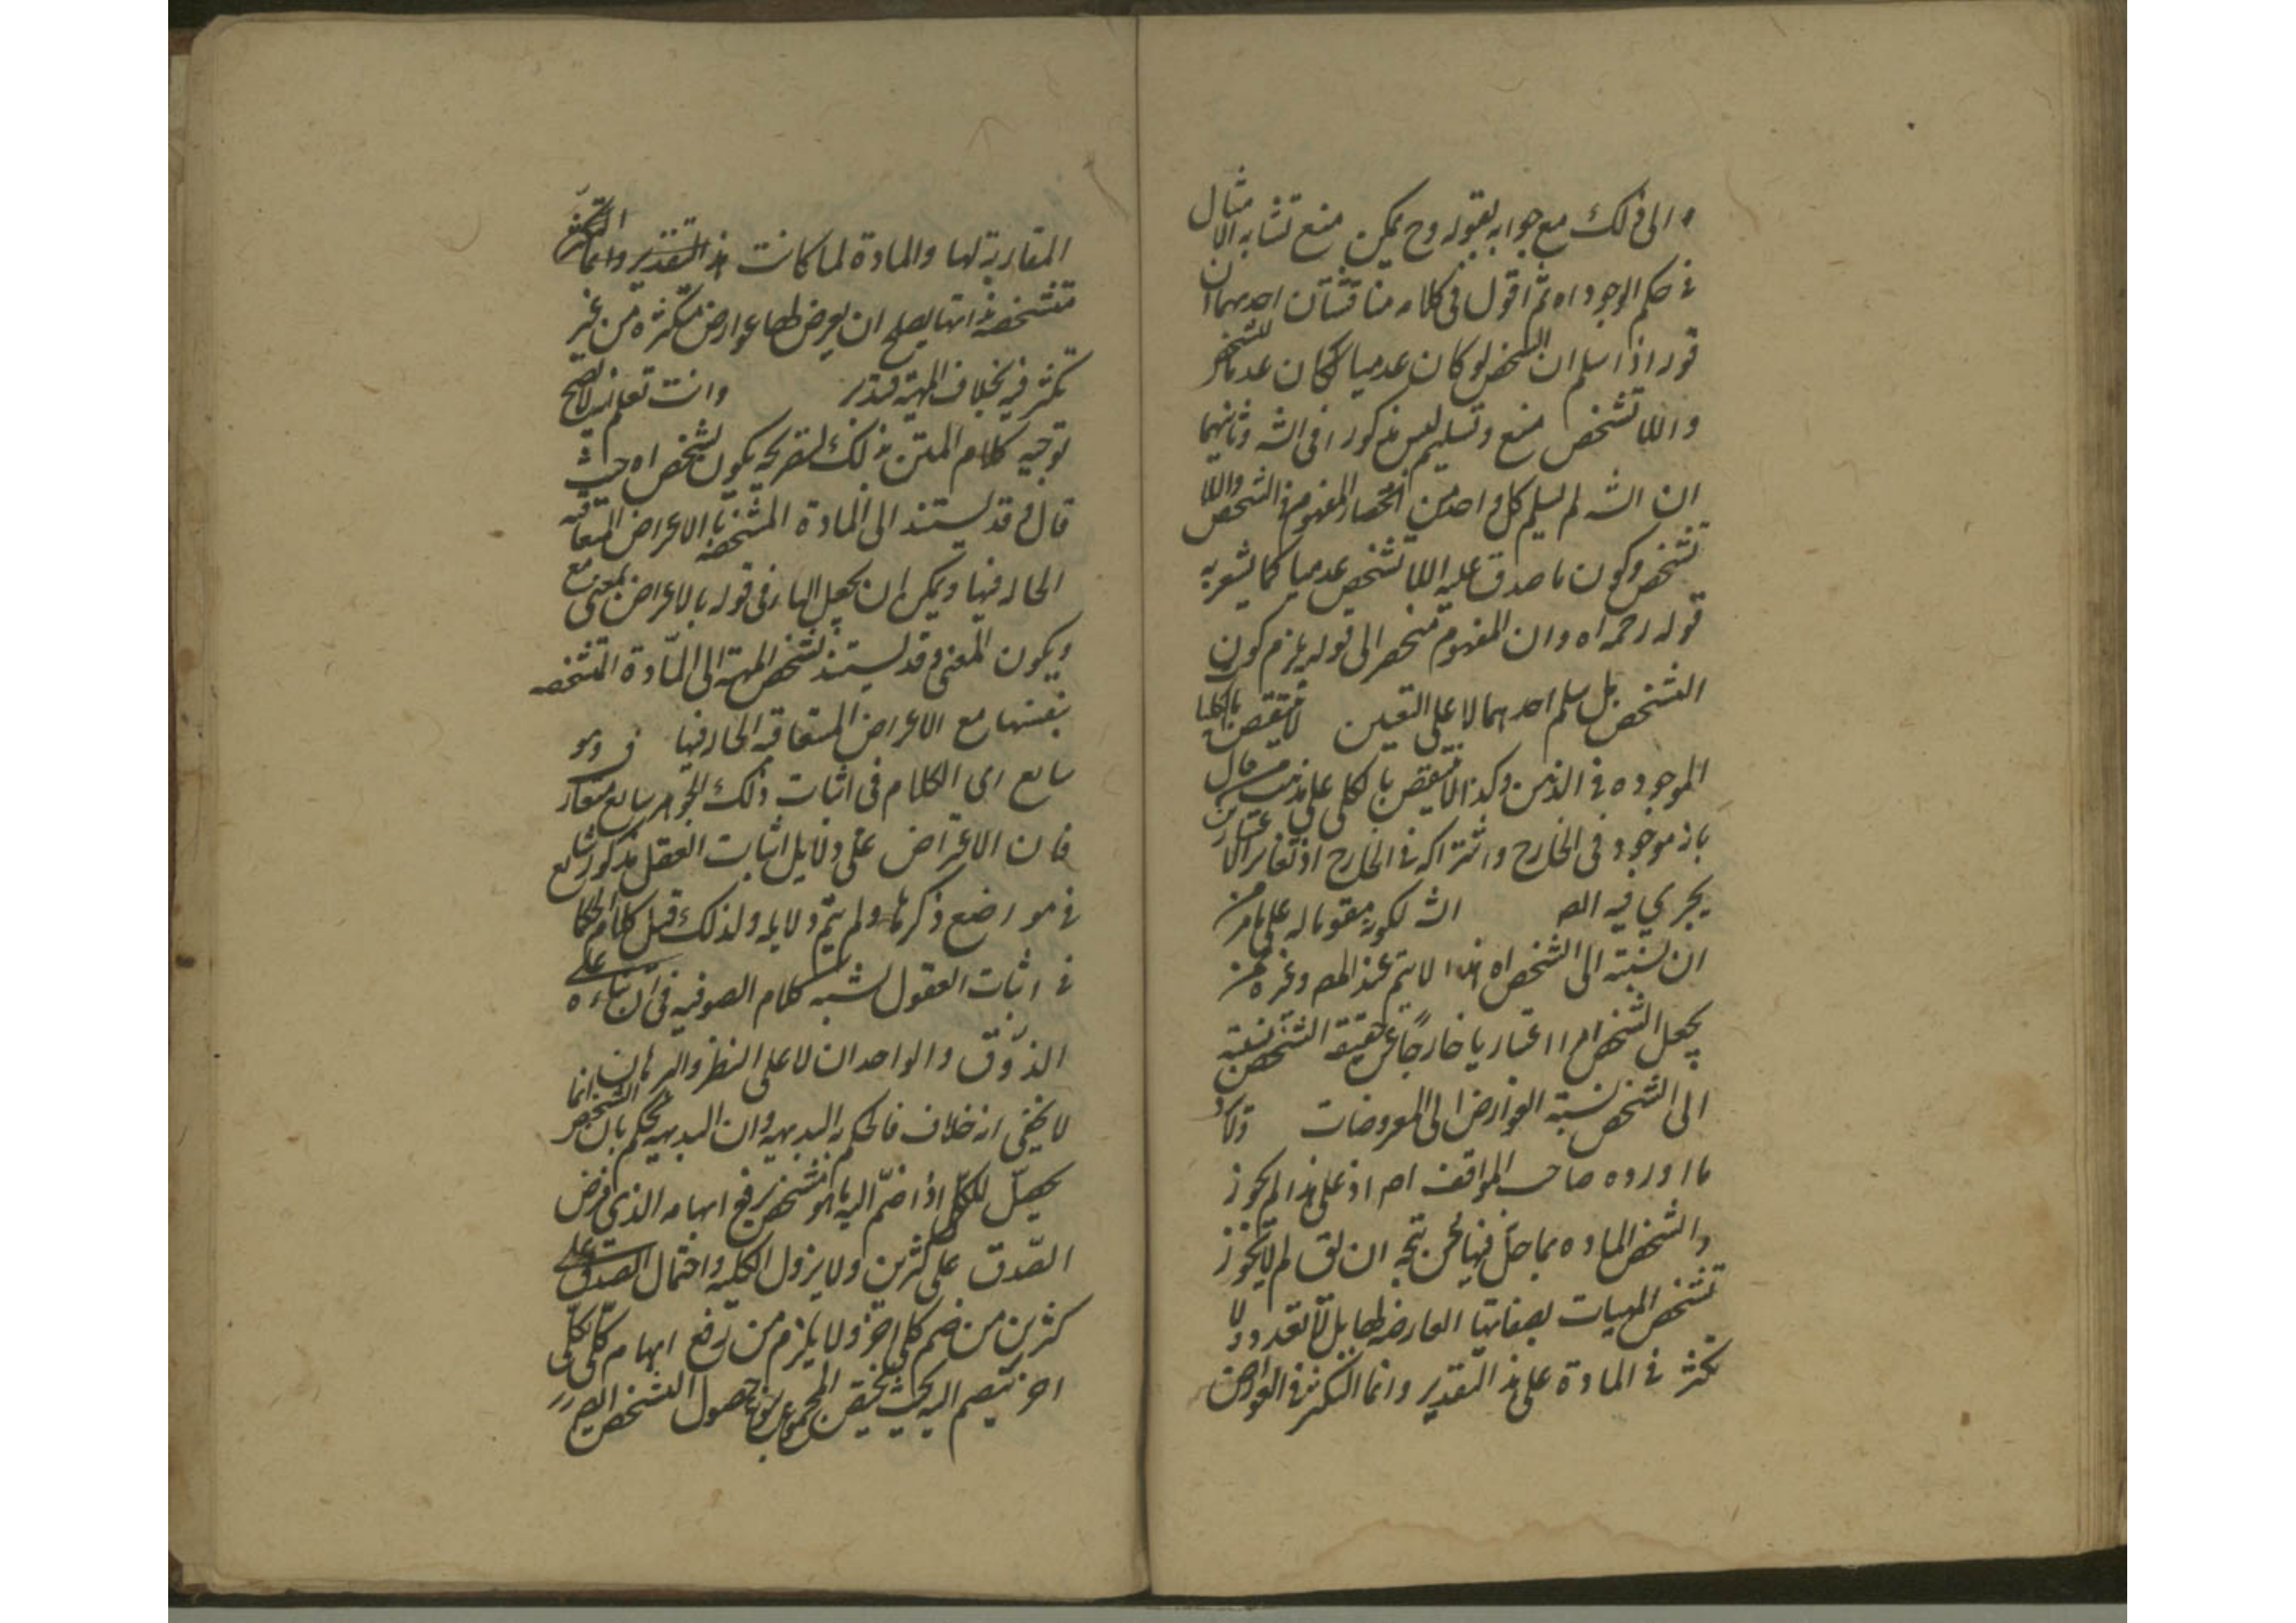 الى ذلك مع جوابه بقوله وح يمكن منع تشابه الامثال
فى حكم الوجود اه ثم اقول فى كلامه مناقشتان احديهما ان
قوله اذا سلم ان التشخص لو كان عدميا لكان عدما للتشخص
واللاتشخص منع وتسليم ليس مذكورا فى الشه وثانيهما
ان الشه لم يسلم كل واحد من انحصار المفهوم فى التشخص واللا
تشخص وكون ما صدق عليه اللاتشخص عدميا كما يشعر به
قوله رحمه اه وان المفهوم منحصر الى قوله يلزم كون
التشخص بل سلم احديهما لا على التعيين لا ينتقض بالكليا
الموجوده فى الذهن وكذا لا ينتقض بالكلى على مذهب من قال
بانه موجود فى الخارج واشتراكه فى الخارج اذ تغاير الا
يجرى فيه الص الشه لكونه مقوما له على ما مر من
ان نسبته الى الشخص اه هذا لا يتم عند المص وغيره ممن
يجعل التشخص امرا اعتباريا خارجا عن حقيقة الشخص نسبته
الى الشخص نسبة العوارض الى المعروضات
ما اورده صاحب المواقف اه اذ على هذا لم يجوز
والشخص الماده بما حل فيها لحن يتجه ان يق لم لا يجوز
تشخص المهيات بصفاتها العارضه لها بل لا تعدد ولا
تكثر فى المادة على هذ التقدير وانما التكثر فى العوارض
المقارنة لها والمادة لما كانت
متشخصة بذاتها يصلح ان يعرض لها عوارض متكثره من غير
تكثر فيه بخلاف المهية فتدبر وانت تعلم انه لا يصح
توجيه كلام المتن بذلك لتصريحه بكون تشخص اه حيث
قال وقد يستند الى المادة المتشخصه بالاعراض المتعاقبه
الحاله فيها ويمكن ان يجعل الباء فى قوله بالاعراض بمعنى مع
ويكون المعنى وقد يستند تشخص المهية الى المادة المتشخصه
بنفسها مع الاعراض المتعاقبه الحاله فيها وهو
شايع اى الكلام فى اثبات ذلك الجوهر شايع متعارف
فان الاعتراض على دلايل اثبات العقل مذكور شايع
فى مواضع ذكرها ولم يتم دلايله ولذلك قيل كلام الحكما
فى اثبات العقول يشبه كلام الصوفيه فى ابتناءه على
الذوق والواجدان لا على النظر والبرهان
لا يخفى انه خلاف ما يحكم به البديهه وان البديهه يحكم بان التشخص انما
يحصل للكلى اذا ضم اليه ما هو متشخص يرفع ابهامه الذى فرض
الصدق على كثيرين ولا يزول الكليه واحتمال الصدق على
كثيرين من ضم كلى اخر ولا يلزم من رفع ابهام كلى بكلى
اخر ينضم اليه بحيث يختص المجموع بنوع حصول التشخص